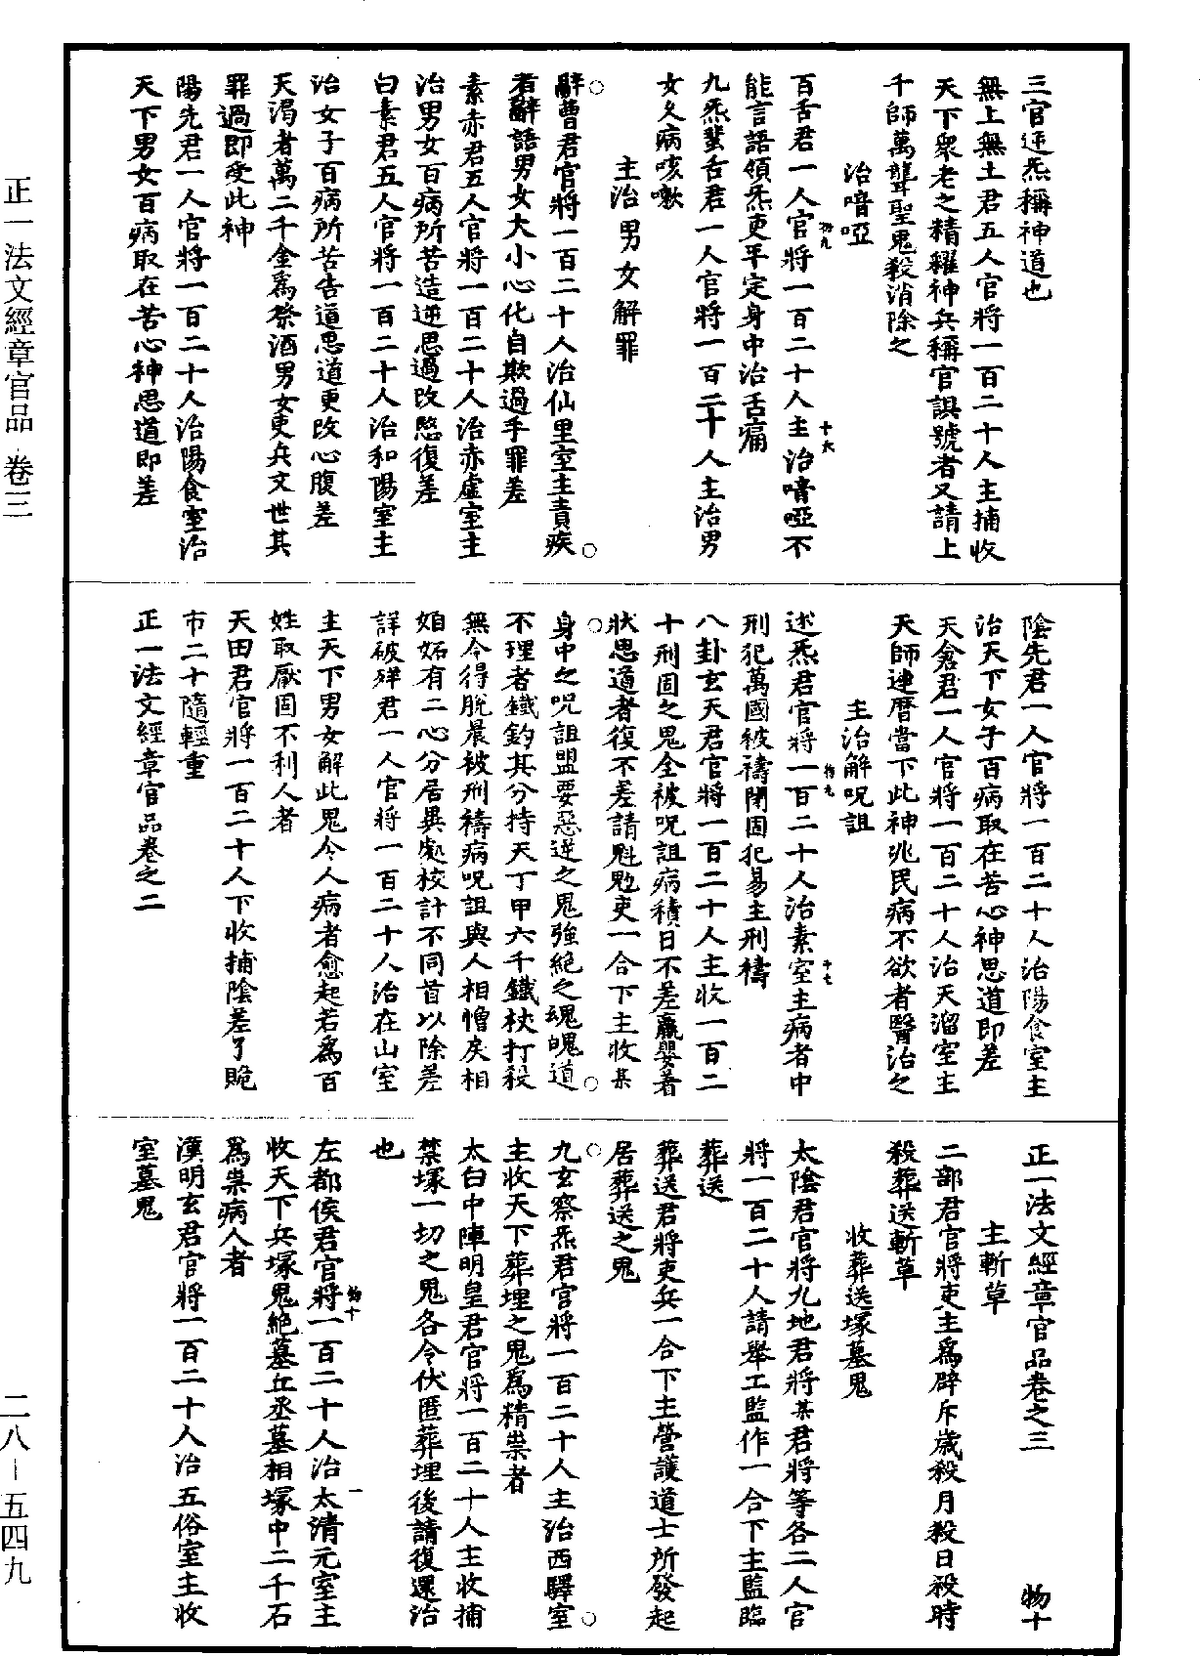 三官逆炁稱神道也
無上無土君五人官將一百二十人主捕收
天下衆老之精耀神兵稱官誤號者又請上
千師萬聾聖鬼殺消除之
治喑啞
百舌君一人官將一百二十人主治喑啞不
能言語領炁吏平定身中治舌痛
九炁蜚舌君一人官將一百二十人主治男
女久病咳嗽
主治男女解罪
辭曹君官將一百二十人治仙里室主責疾
者辭語男女大小心化自欺過手罪差
素赤君五人官將一百二十人治赤虛室主
治男女百病所苦造逆思過改愍復差
白素君五人官將一百二十人治和陽室主
治女子百病所苦告道思道更改心腹差
天渴者萬二千金爲祭酒男女更兵文世其
罪過即受此神
陽先君一人官將一百二十人治陽食室治
天下男女百病取在苦心神思道即差
陰先君一人官將一百二十人治陽食室主
治天下女子百病取在苦心神思道即差
天倉君一人官將一百二十人治天溜室主
天師建曆當下此神兆民病不欲者醫治之
主治解呪詛
述炁君官將一百二十人治素室主病者中
刑犯萬國被禱閉固犯易主刑禱
八卦玄天君官將一百二十人主收一百二
十刑固之鬼全被呪詛病積日不差羸嬰著
狀思道者復不差請魁魁吏一合下主收某
身中之呪詛盟要惡逆之鬼強絶之魂魄道
不理者鐵鈎其分持天丁甲六千鐵杖打殺
無令得脫晨被刑禱病呪詛與人相憎戾相
妬有二心分居異處校計不同首以除差
詳破殃君一人官將一百二十人治在山室
主天下男女解此鬼令人病者愈起若爲百
姓取厭固不利人者
天田君官將一百二十人下收捕陰差了賍
市二十隨輕重
正一法文經章官品卷之二
正一法文經章官品卷之三 物十
主斬草
二部君官將吏主爲辟斥歲殺月殺日殺時
殺葬送斬草
收葬送塚墓鬼
太陰君官將九地君將某君將等各二人官
將一百二十人請舉工監作一合下主監臨
葬送
葬送君將吏兵一合下主營護道士所發起
居葬送之鬼
九玄察炁君官將一百二十人主治西驛室
主收天下葬埋之鬼爲精祟者
太白中陣明皇君官將一百二十人主收捕
禁塚一切之鬼各令伏匿葬埋後請復還治
也
左都侯君官將一百二十人治太清元室主
收天下兵塚鬼絶墓丘丞墓相塚中二千石
爲祟病人者
漢明玄君官將一百二十人治五俗室主收
室墓鬼
正一法文經章官品 卷三
二八-五四九